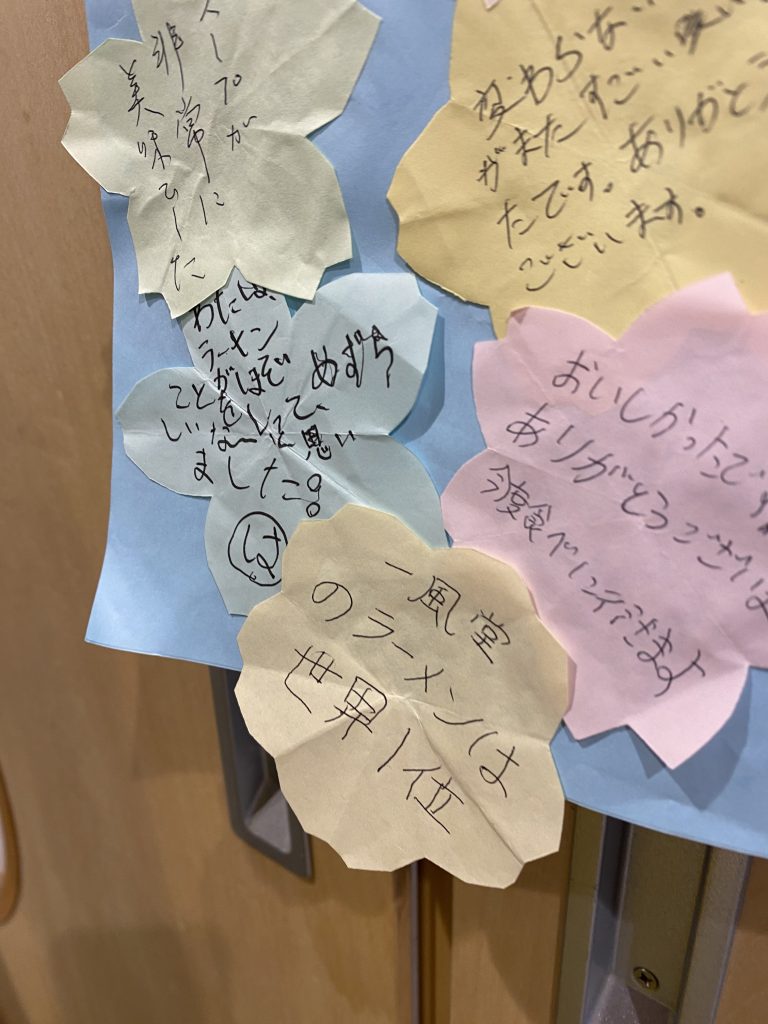 スープが
非常に
美味でした
変わらない
がまたすごい味い
たです。ありがとう
ございます。
わたしは、
ラーメン
がほぞ
めずら
ことを
しいなーして、
思い
ました!
は
おいしかったです
ありがとうござい
今度食べに行きます
一風堂
のラーメンは
世界1位